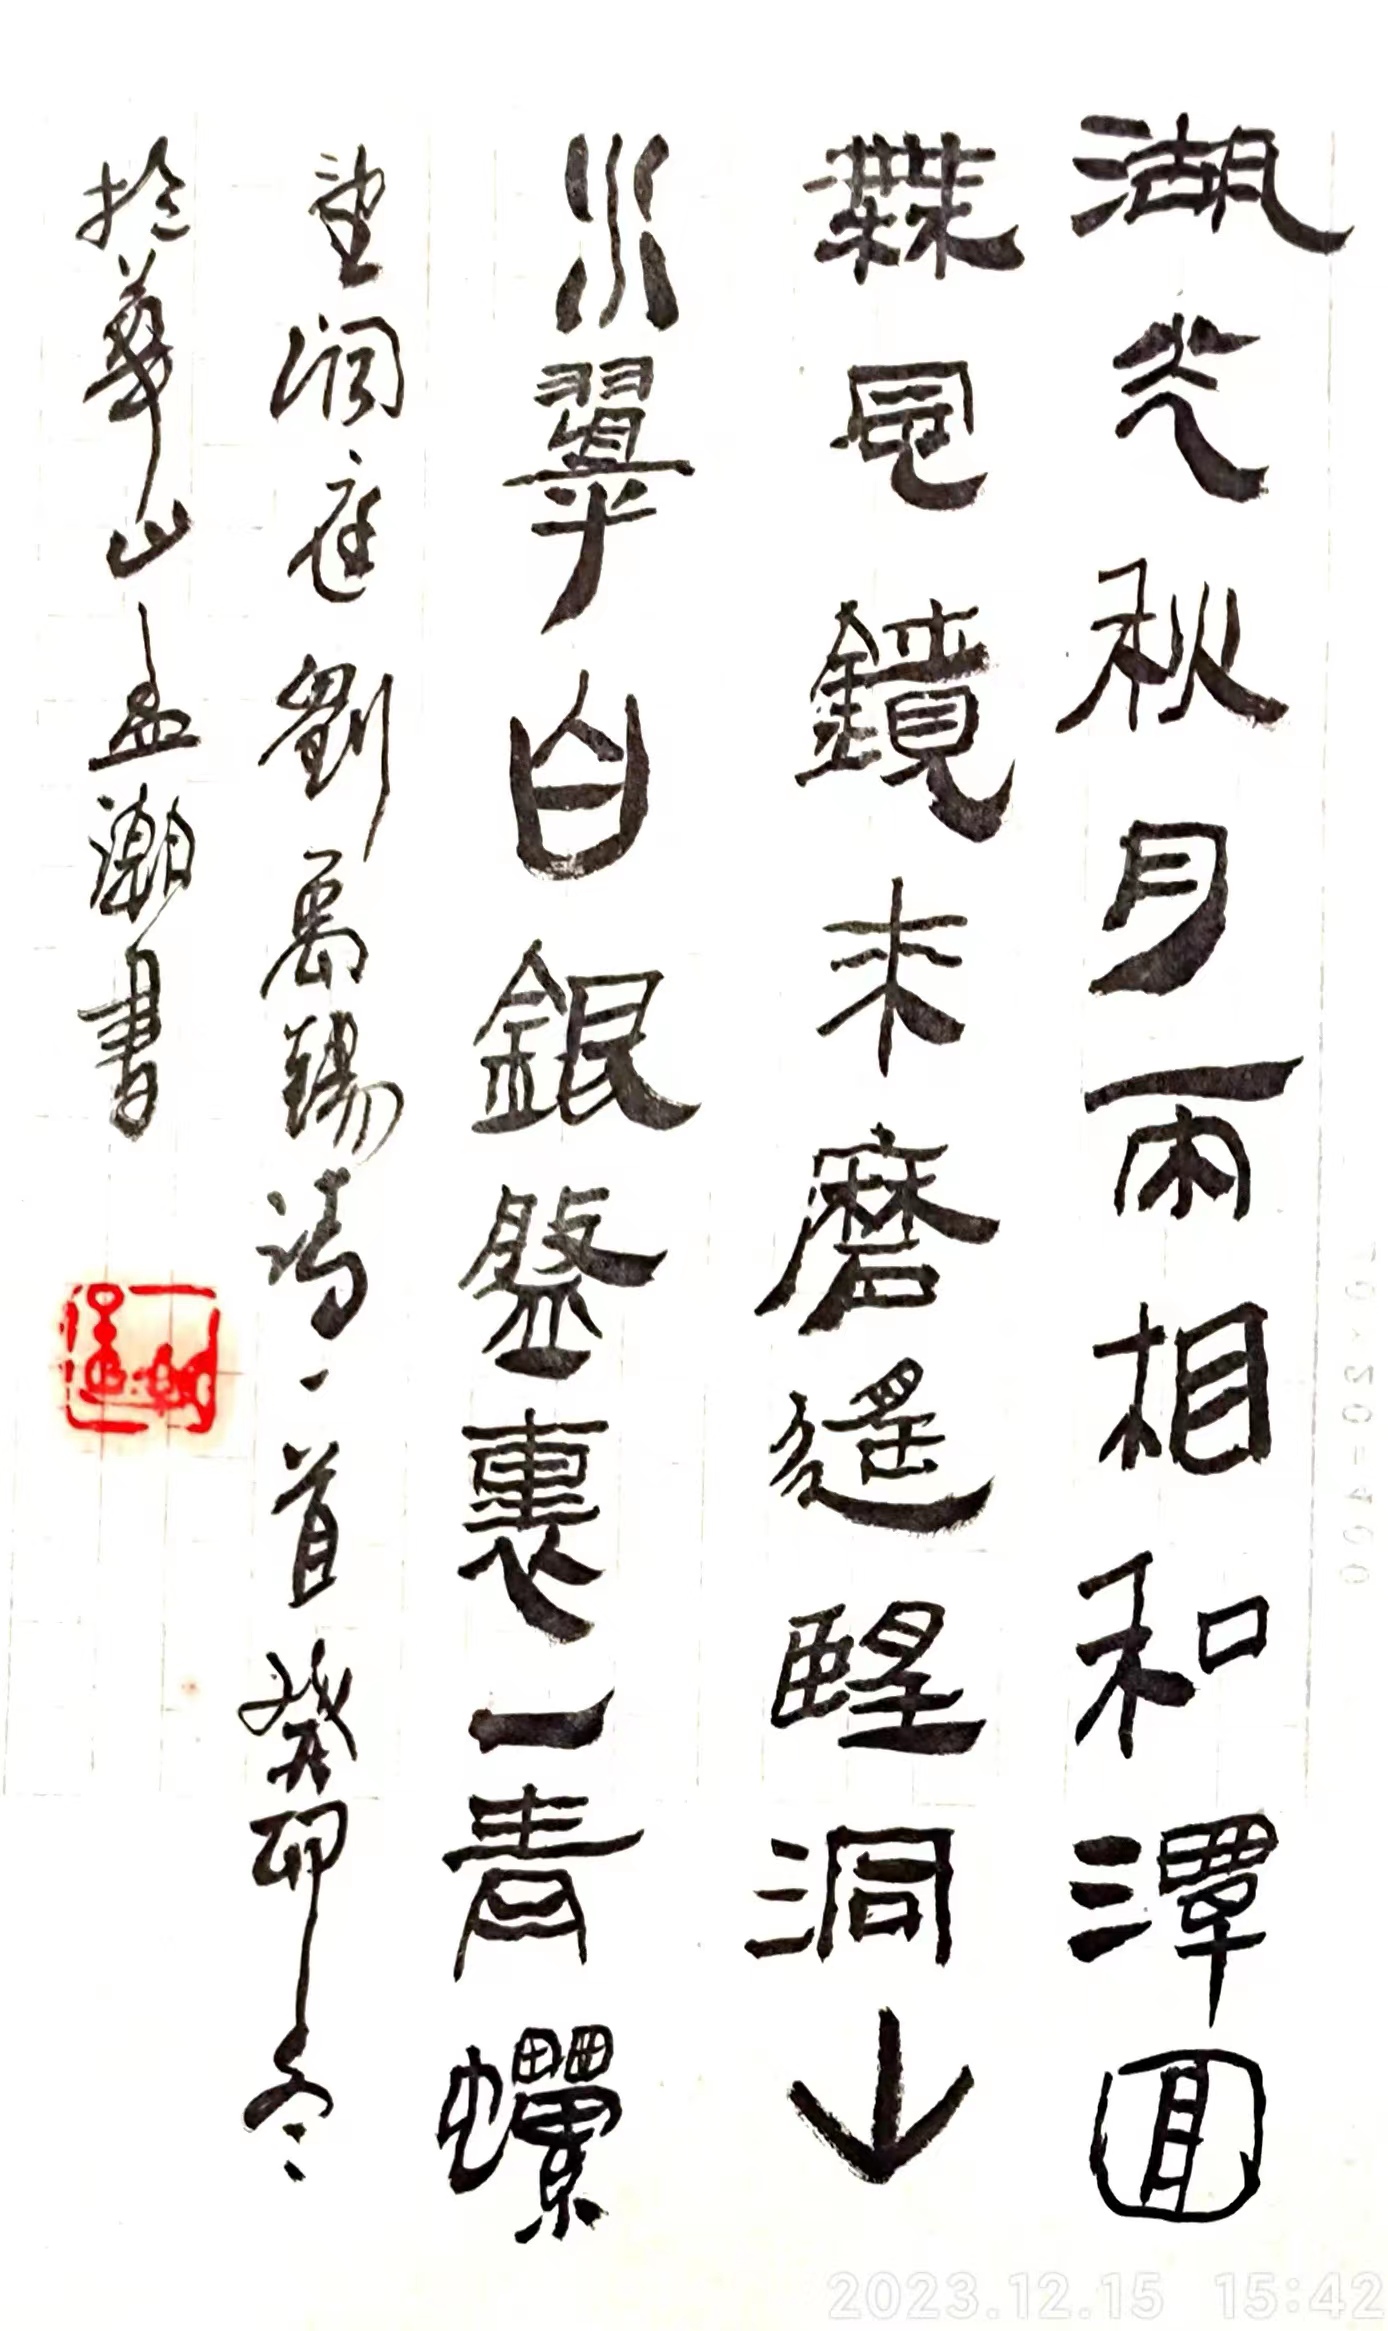 湖光秋月兩相和潭面
無風鏡未磨遙朢洞山
水翠白銀盤裏一青螺
望洞庭劉禹錫詩一首癸卯冬
於華山孟潮書
2023.12.15 15:42